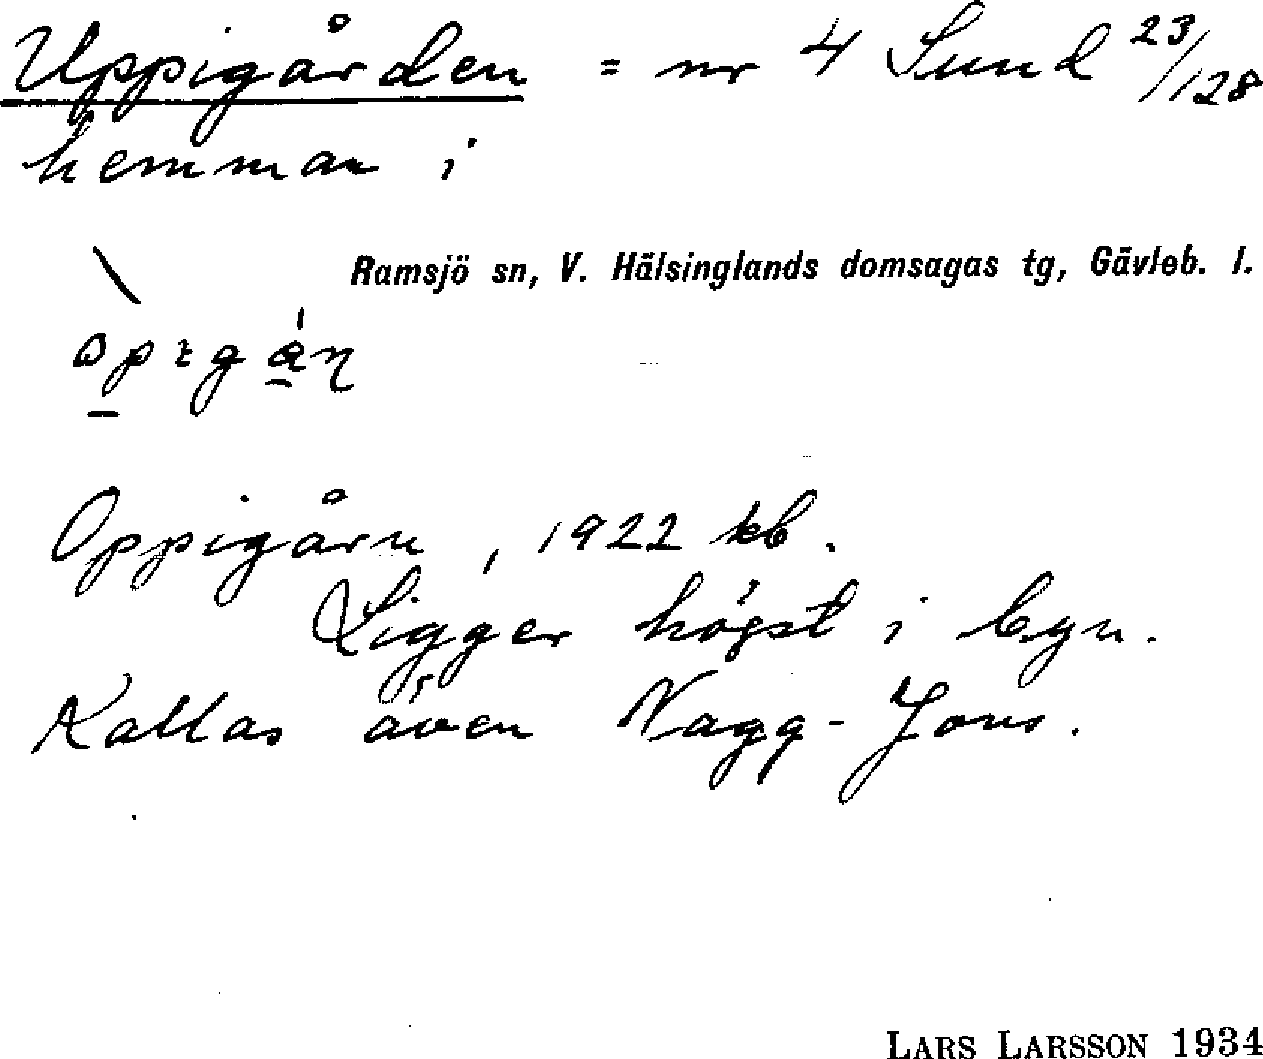 Uppigården = nr 4 Sund 23/128
hemman i
Ramsjö sn, V. Hälsinglands domsagas tg, Gävleb. l.
Oppigårn, 1922 kb.
Ligger högst i byn.
Kallas även Nagg-Jons.
LARS LARSSON 1934